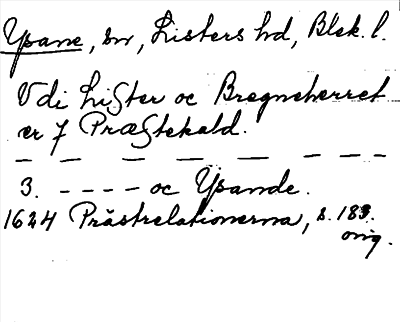 Ysane, sn, Listers hd, Blek. l.
Vdi Lister oc Bregneherret
er 7 Præstekald.
— — — — — — — —
3. - - - - oc Ysande.
1624 Prästrelationerna, s. 189.
orig.